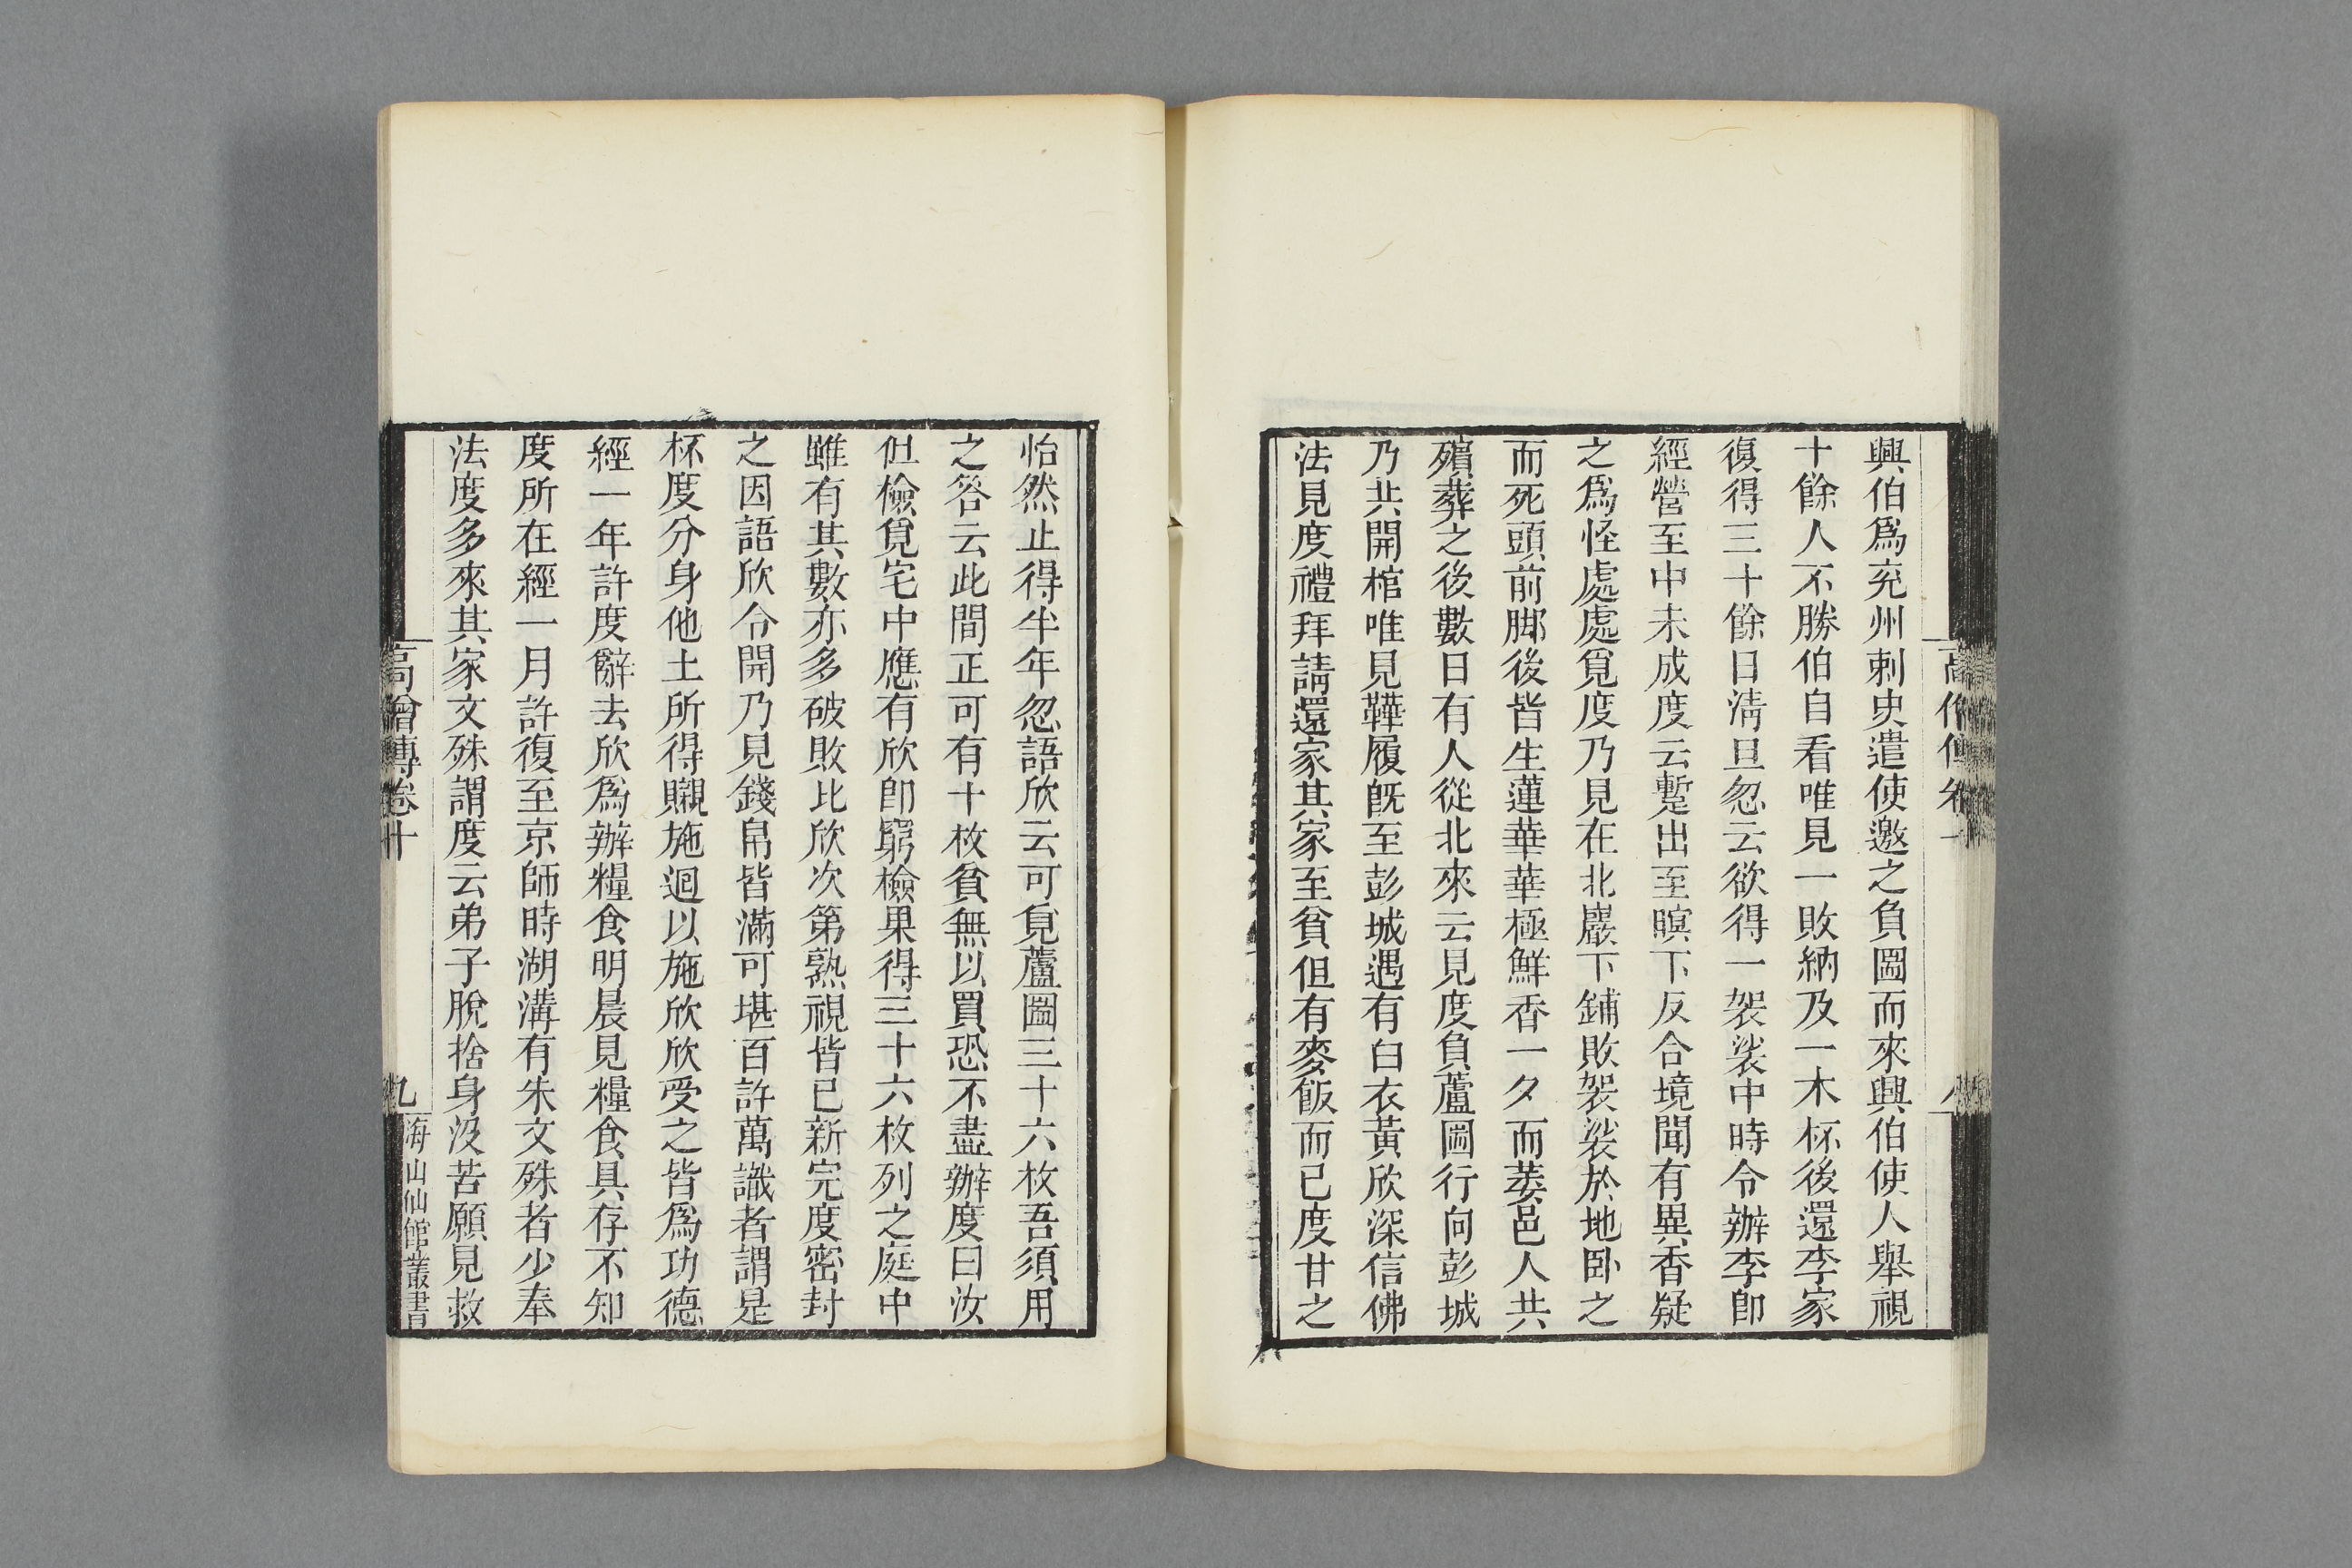 興伯爲兖州刺史遣使邀之負圌而來興伯使人舉視
十餘人不勝伯自看唯見一敗納及一木杯後還李家
復得三十餘日淸旦忽云欲得一袈裟中時令辦李卽
經營至中未成度云蹔出至暝不反合境聞有異香疑
之爲怪處處覓度乃見在北巖下鋪敗袈裟於地卧之
而死頭前脚後皆生蓮華華極鮮香一夕而萎邑人共
殯葬之後數日有人從北來云見度負蘆圌行向彭城
乃共開棺唯見鞾履旣至彭城遇有白衣黃欣深信佛
法見度禮拜請還家其家至貧但有麥飯而已度甘之
怡然止得半年忽語欣云可覓蘆圌三十六枚吾須用
之答云此間正可有十枚貧無以買恐不盡辦度曰汝
但檢覓宅中應有欣卽窮檢果得三十六枚列之庭中
雖有其數亦多破敗比欣次第熟視皆已新完度密封
之因語欣令開乃見錢帛皆滿可堪百許萬識者謂是
杯度分身他土所得賵施迴以施欣欣受之皆爲功德
經一年許度辭去欣爲辦糧食明晨見糧食具存不知
度所在經一月許復至京師時湖溝有朱文殊者少奉
法度多來其家文殊謂度云弟子脫捨身沒苦願見救
高僧傳卷十
九
海山仙館叢書